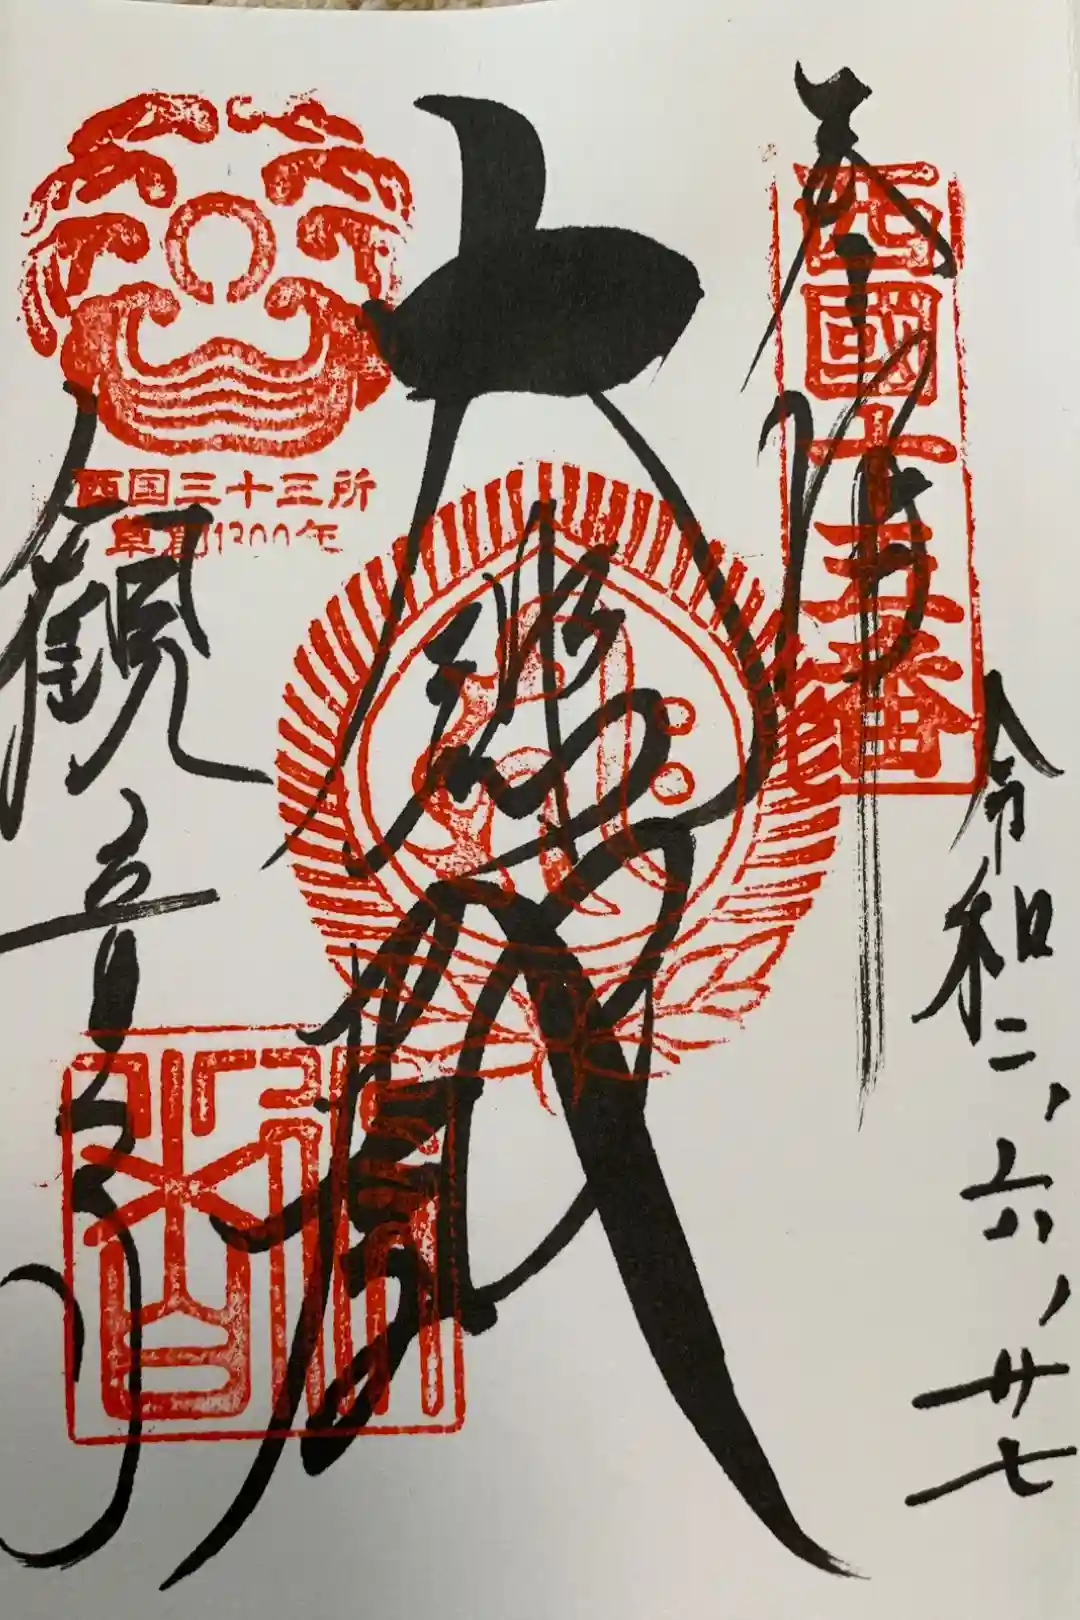 奉拝
西國十五番
令和二、六、廿七
大悲殿
西国三十三所
草創1300年
今熊野
観音寺